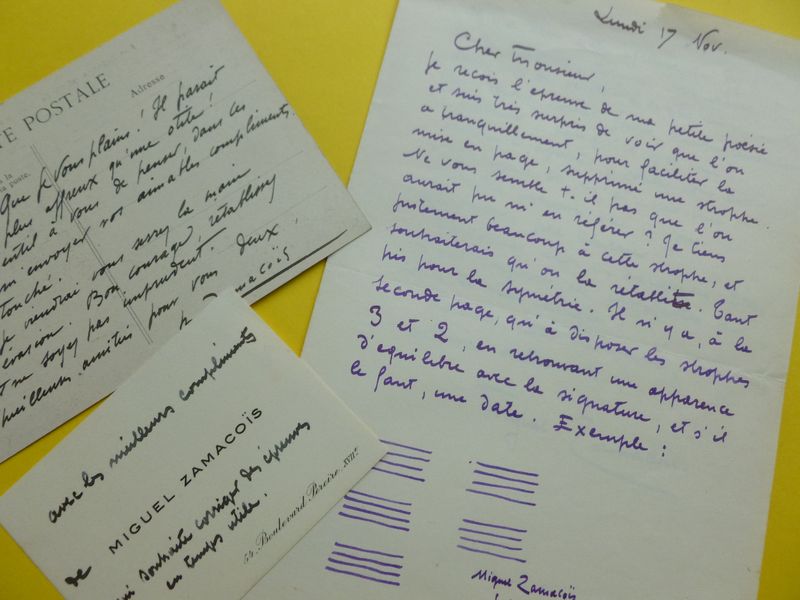 TE POSTALE
Adresse
que je vous plains! Il parait
plus affreux qu'une otite!
gentil à vous de penser, dans ces
m'envoyer vos aimables compliments.
touché.
je viendrai vous serrer la main
évasion. Bon courage, rétablissez
et ne soyez pas imprudent.
meilleures amitiés pour vous deux.
Zamacoïs
avec les meilleurs compliments
de MIGUEL ZAMACOÏS
qui souhaite corriger des épreuves
en temps utile.
54, Boulevard Pereire, XVIIe
Lundi 17 Nov.
Cher Monsieur,
Je reçois l'épreuve de ma petite poésie
et suis très surpris de voir que l'on
a tranquillement, pour faciliter la
mise en page, supprimé une strophe.
Ne vous semble t-il pas que l'on
aurait pu m'en référer? Je tiens
justement beaucoup à cette strophe, et
souhaiterais qu'on la rétablit. Tant
pis pour la symétrie. Il n'y a, à la
seconde page, qu'à disposer les strophes
3 et 2, en retrouvant une apparence
d'équilibre avec la signature, et s'il
le faut, une date. Exemple:
Miguel Zamacoïs